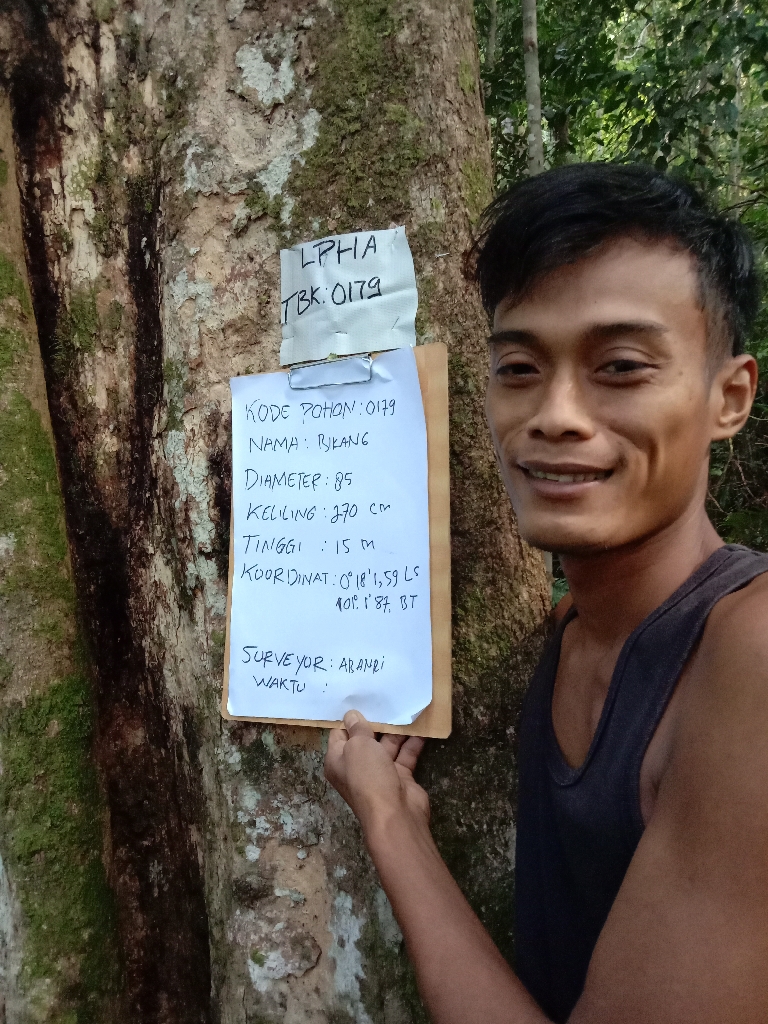 LPHA
TBK:0179
KODE POHON:0179
NAMA: BIKANG
DIAMETER: 85
KELILING: 270 cm
TINGGI : 15 m
KOORDINAT: 0°18'1,59 LS
101°.1'87. BT
SURVEYOR: ABANRI
WAKTU :